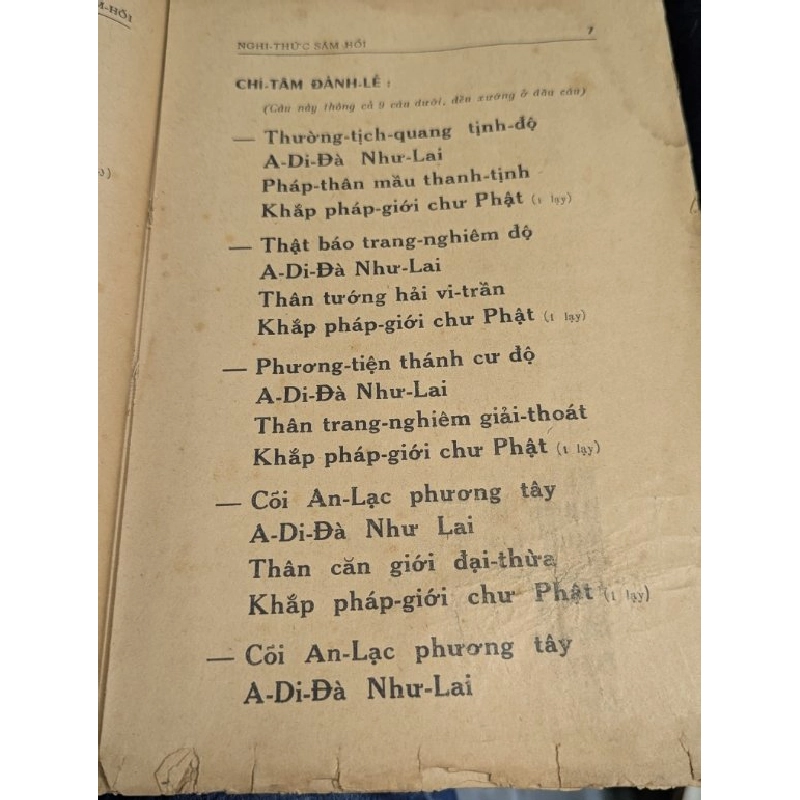 M-HỐI
NGHI-THỨC SÁM HỐI
7
CHÍ-TÂM ĐẢNH-LỄ :
(Câu này thông cả 9 câu dưới, đều xướng ở đầu câu)
— Thường-tịch-quang tịnh-độ
A-Di-Đà Như-Lai
Pháp-thân mầu thanh-tịnh
Khắp pháp-giới chư Phật (1 lạy)
— Thật báo trang-nghiêm độ
A-Di-Đà Như-Lai
Thân tướng hải vi-trần
Khắp pháp-giới chư Phật (1 lạy)
— Phương-tiện thánh cư độ
A-Di-Đà Như-Lai
Thân trang-nghiêm giải-thoát
Khắp pháp-giới chư Phật (1 lạy)
— Cõi An-Lạc phương tây
A-Di-Đà Như Lai
Thân căn giới đại-thừa
Khắp pháp-giới chư Phật (1 lạy)
— Cõi An-Lạc phương tây
A-Di-Đà Như-Lai